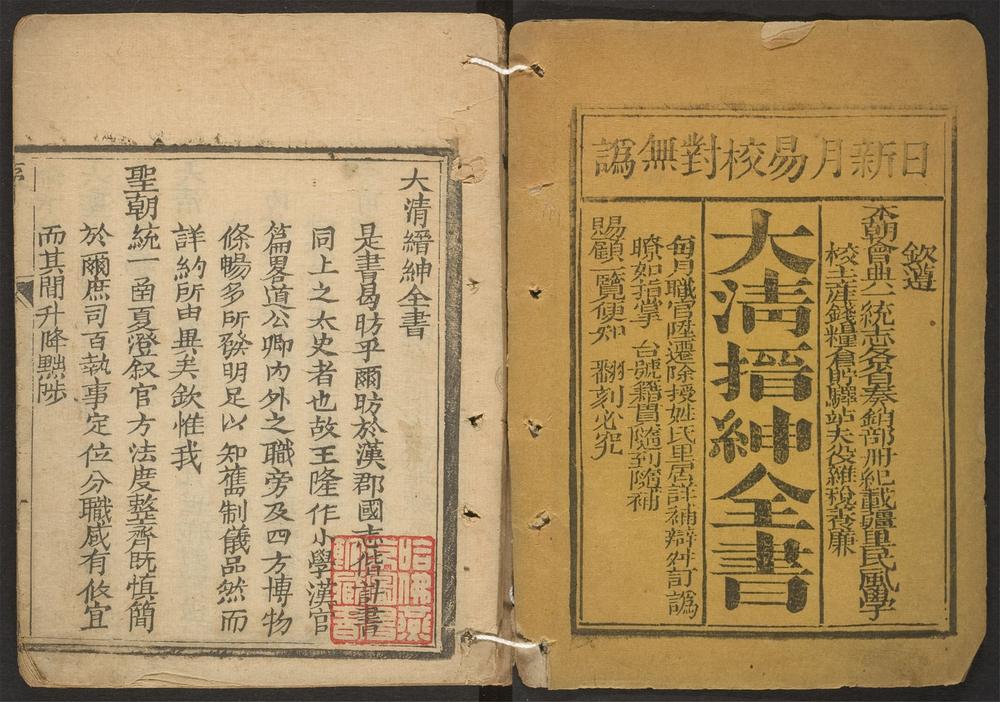 日新月易校對無譌
欽遵
本朝會典一統志各省奏銷部冊紀載疆里民風學
校土產錢糧倉儲驛站夫役雜稅養廉
大清搢紳全書
每月職官陞遷除授姓氏里居詳補辯舛訂譌
瞭如指掌 台號籍貫隨到隨補
賜顧一覽便知 翻刻必究
大清縉紳全書
是書曷昉乎爾昉於漢郡國志偕計書
同上之太史者也故王隆作小學漢官
篇畧道公卿內外之職旁及四方博物
條暢多所發明足以知舊制儀品然而
詳約所由異矣欽惟我
聖朝統一凾夏澄叙官方法度整齊既慎簡
於爾庶司百執事定位分職咸有攸宜
而其間升降黜陟
哈佛燕